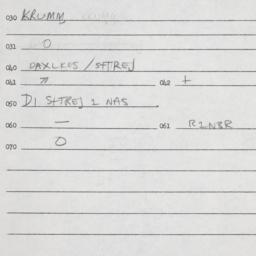 030 KRUMM
031 0
040 DAXLKES / SHTREJ
041 7 042 +
050 DI SHTREJ 1 NAS
060 — 061 R1N3R
070 0